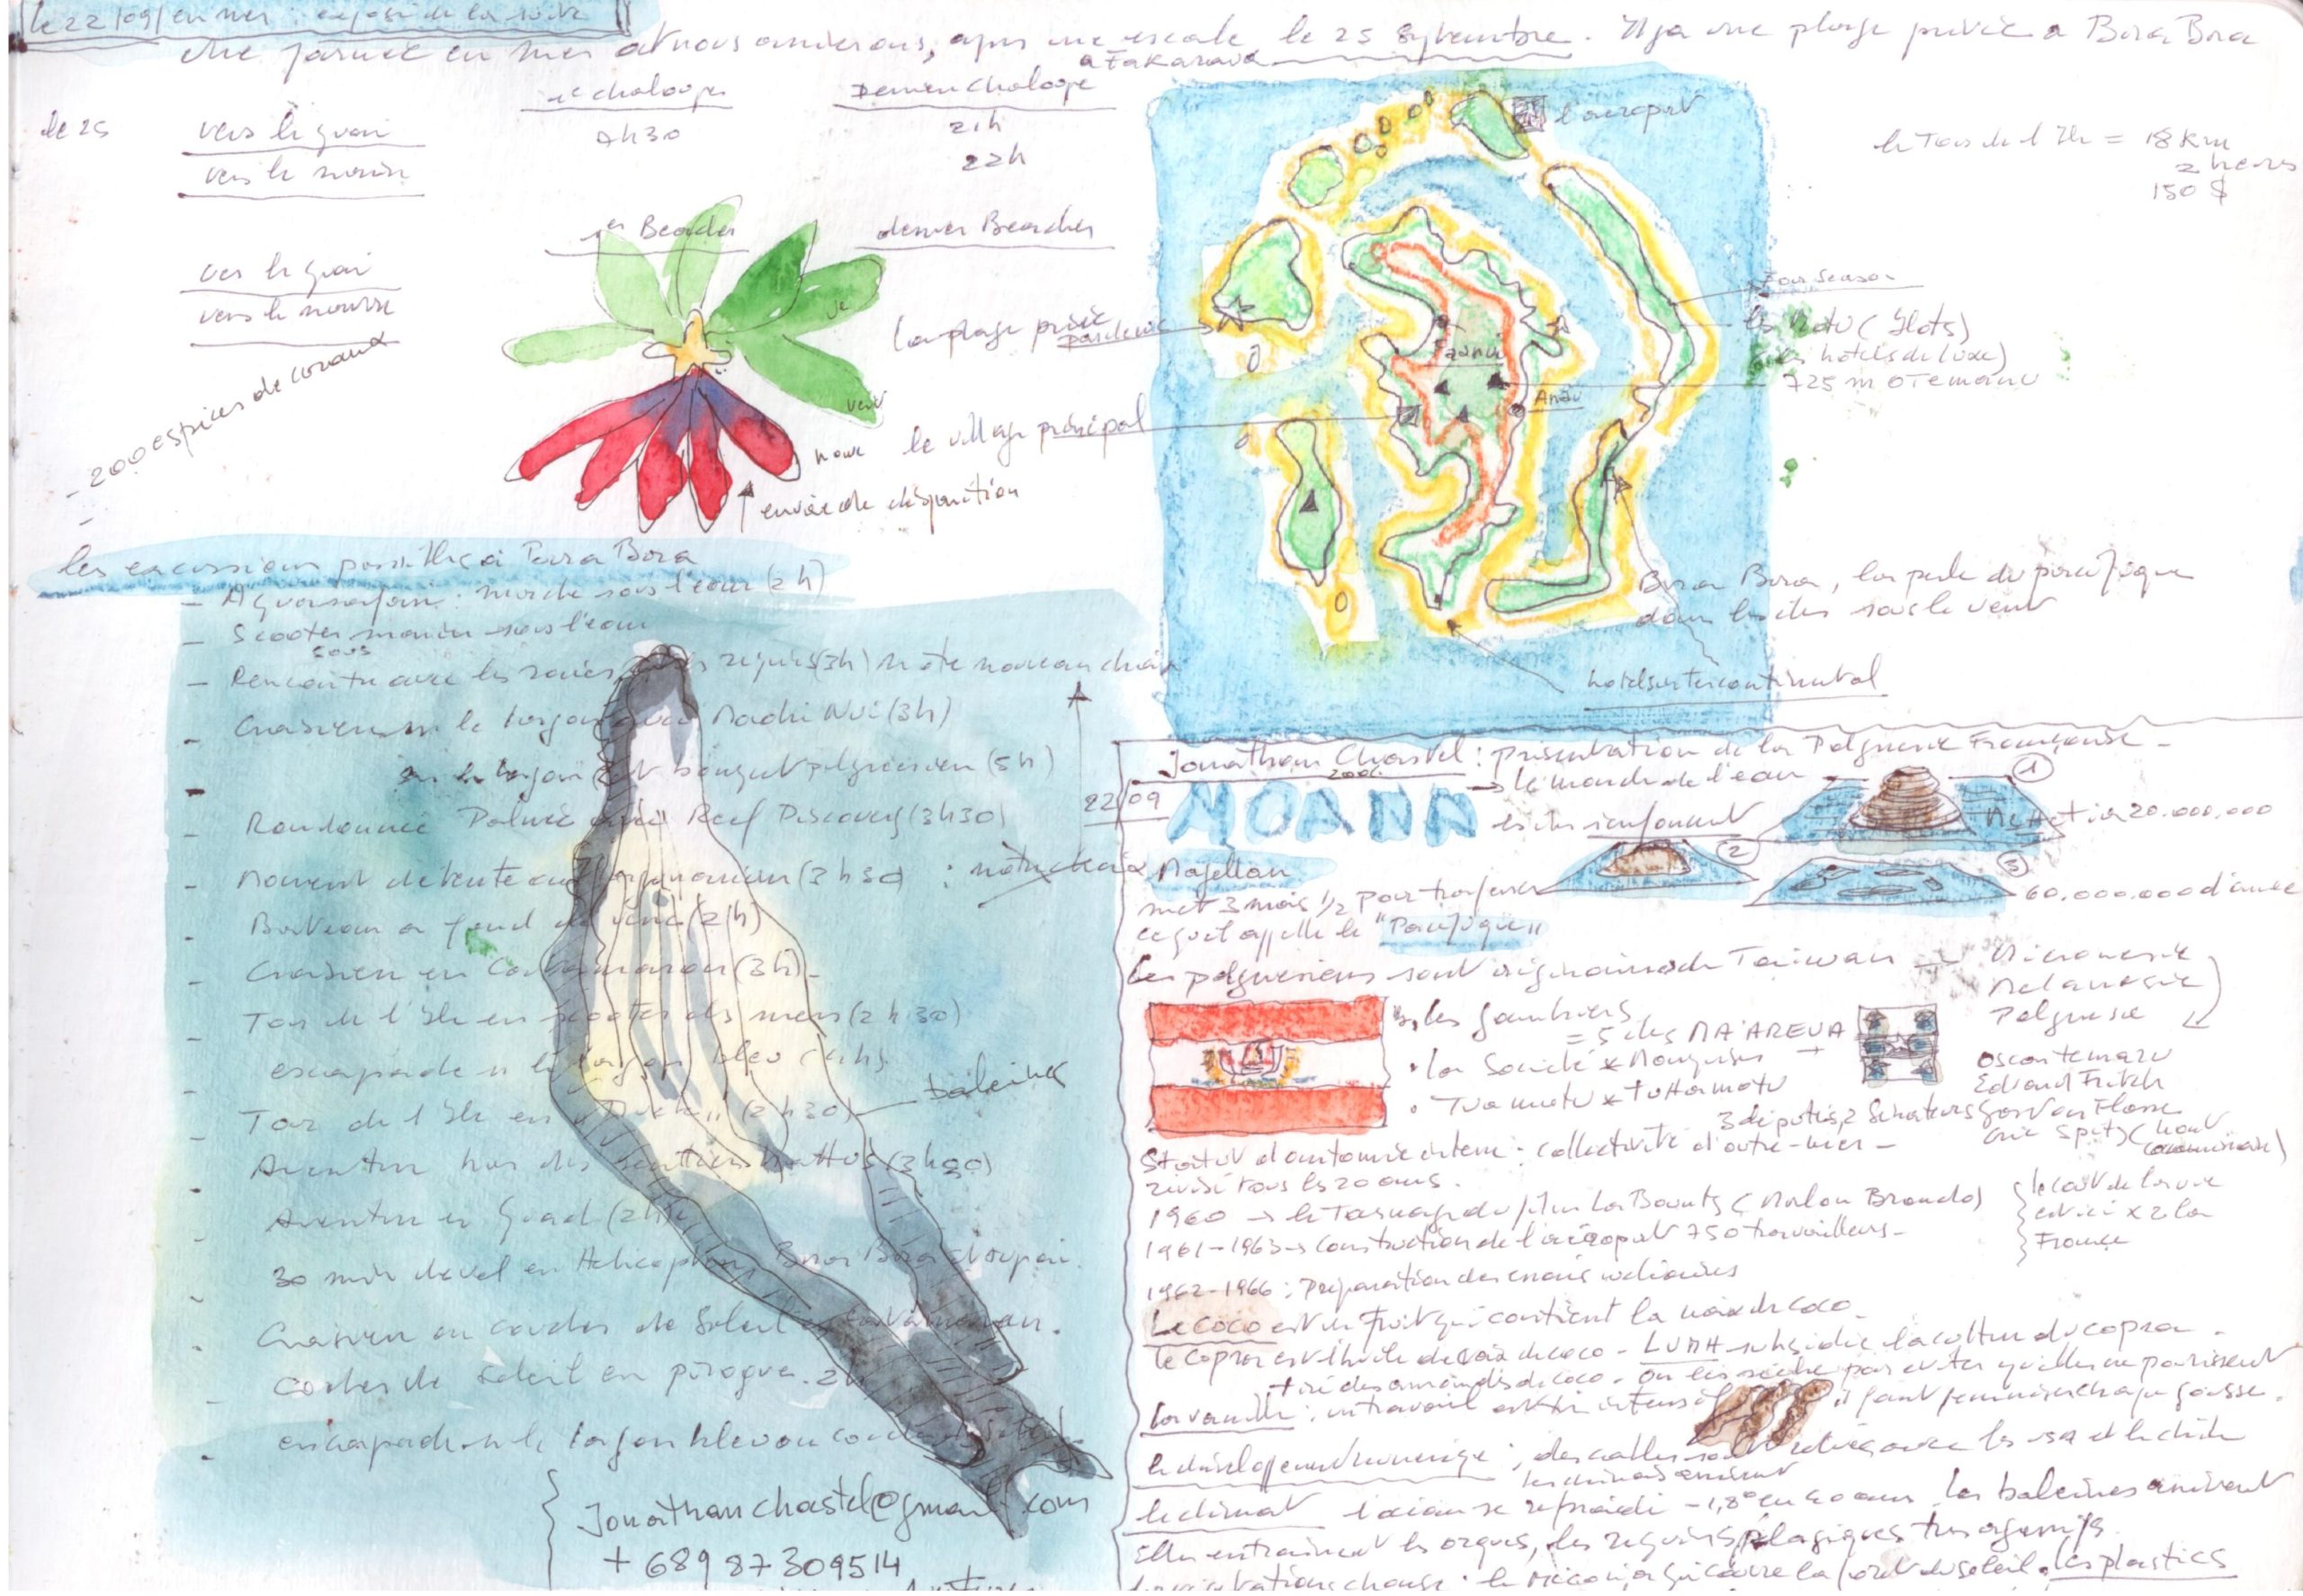 le 22/09/en mer : exposé de la suite
une journée en mer et nous arriverons, après une escale le 25 septembre. Il y a une plage privée a Bora Bora
a FAKARAVA
1e chaloupe
Dernier chaloupe
le 25
vers le quai
7h30
21h
vers le navire
22h
1er Beacher
dernier Beacher
vers le quai
vers le navire
- 200 espèces de coraux
vert
envoie de disparition
l'aéroport
le Tour de l'Ile = 18 Km
2 heures
150 $
Four Season
la plage privée
les Motu (îlots)
(les hotels de luxe)
725 m OTEMANU
Faanui
Anau
le village principal
Bora Bora, la perle du pacifique
dans les îles sous le vent
hotel intercontinental
les excursions possibles à Bora Bora
- Aquasafari : marche sous l'eau (2h)
- Scooter marin sous l'eau
- Rencontre avec les raies requins (3h) notre nouveau choix
- Croisière sur le lagon avec Maohi Nui (3h)
- sur le lagon et banquet polynésien (5h)
- Randonnée Palmée avec Reef Discovery (3h30)
- Moment detente au lagoonarium (3h30) : notre choix
- Bateau a fond de verre (2h)
- Croisière en Catamaran (3h)
- Tour de l'Ile en scooter des mers (2h30)
escapade sur le lagon bleu (4h)
- Tour de l'Ile en "Truck" (2h30)
baleines
- Aventure hors des sentiers battus (3h30)
- Aventure en Quad (2h)
- 30 min de vol en Hélicoptère, Bora Bora et Tupai
- Croisière au coucher de Soleil en catamaran.
- Coucher de Soleil en pirogue. 2h
- escapade sur le lagon bleu ou coucher de Soleil
Jonathanchastel@gmail.com
+ 689 87309514
Jonathan Chastel : présentation de la Polynésie Française -
22/09
MOANA
→ le monde de l'eau
les îles s'enfoncent
1
2
3
20.000.000
60.000.000 d'année
Magellan
met 3 mois 1/2 pour traverser
ce qu'il appelle le "Pacifique"
Les polynésiens sont originaires de Taiwan →
Micronésie
Mélanésie
Polynésie
les gambiers
= 5 îles MA'AREVA
• la Société * Marquises
• Tuamotu * tuhamotu
Oscar temaru
Edouard Fritch
Gaston Flosse
3 députés, 2 Sénateurs
Eric Spitz (haut commissaire)
Statut d'autonomie interne : collectivité d'outre-mer -
révisé tous les 20 ans.
1960 → le Tournage du film La Bounty (Marlon Brando)
1961-1963 → construction de l'aéroport 750 travailleurs -
le coût de la vie
est ici x 2 la
France
1962-1966 : Préparation des essais nucléaires
Le COCO est un fruit qui contient la noix de coco
le copra est l'huile de noix de coco - subsidie la culture du copra.
tiré des amandes de coco. on les sèche pour éviter qu'elles ne pourrissent
la vanille : un travail très intensif, il faut chaque gousse.
le développement numérique : des câbles sont reliés avec les USA et le chili
les chinois arrivent
le climat l'océan se refroidi -1,8° en 40 ans les baleines arrivent
Elles entrainent les orques, les requins pélagiques très agressifs
les plastics